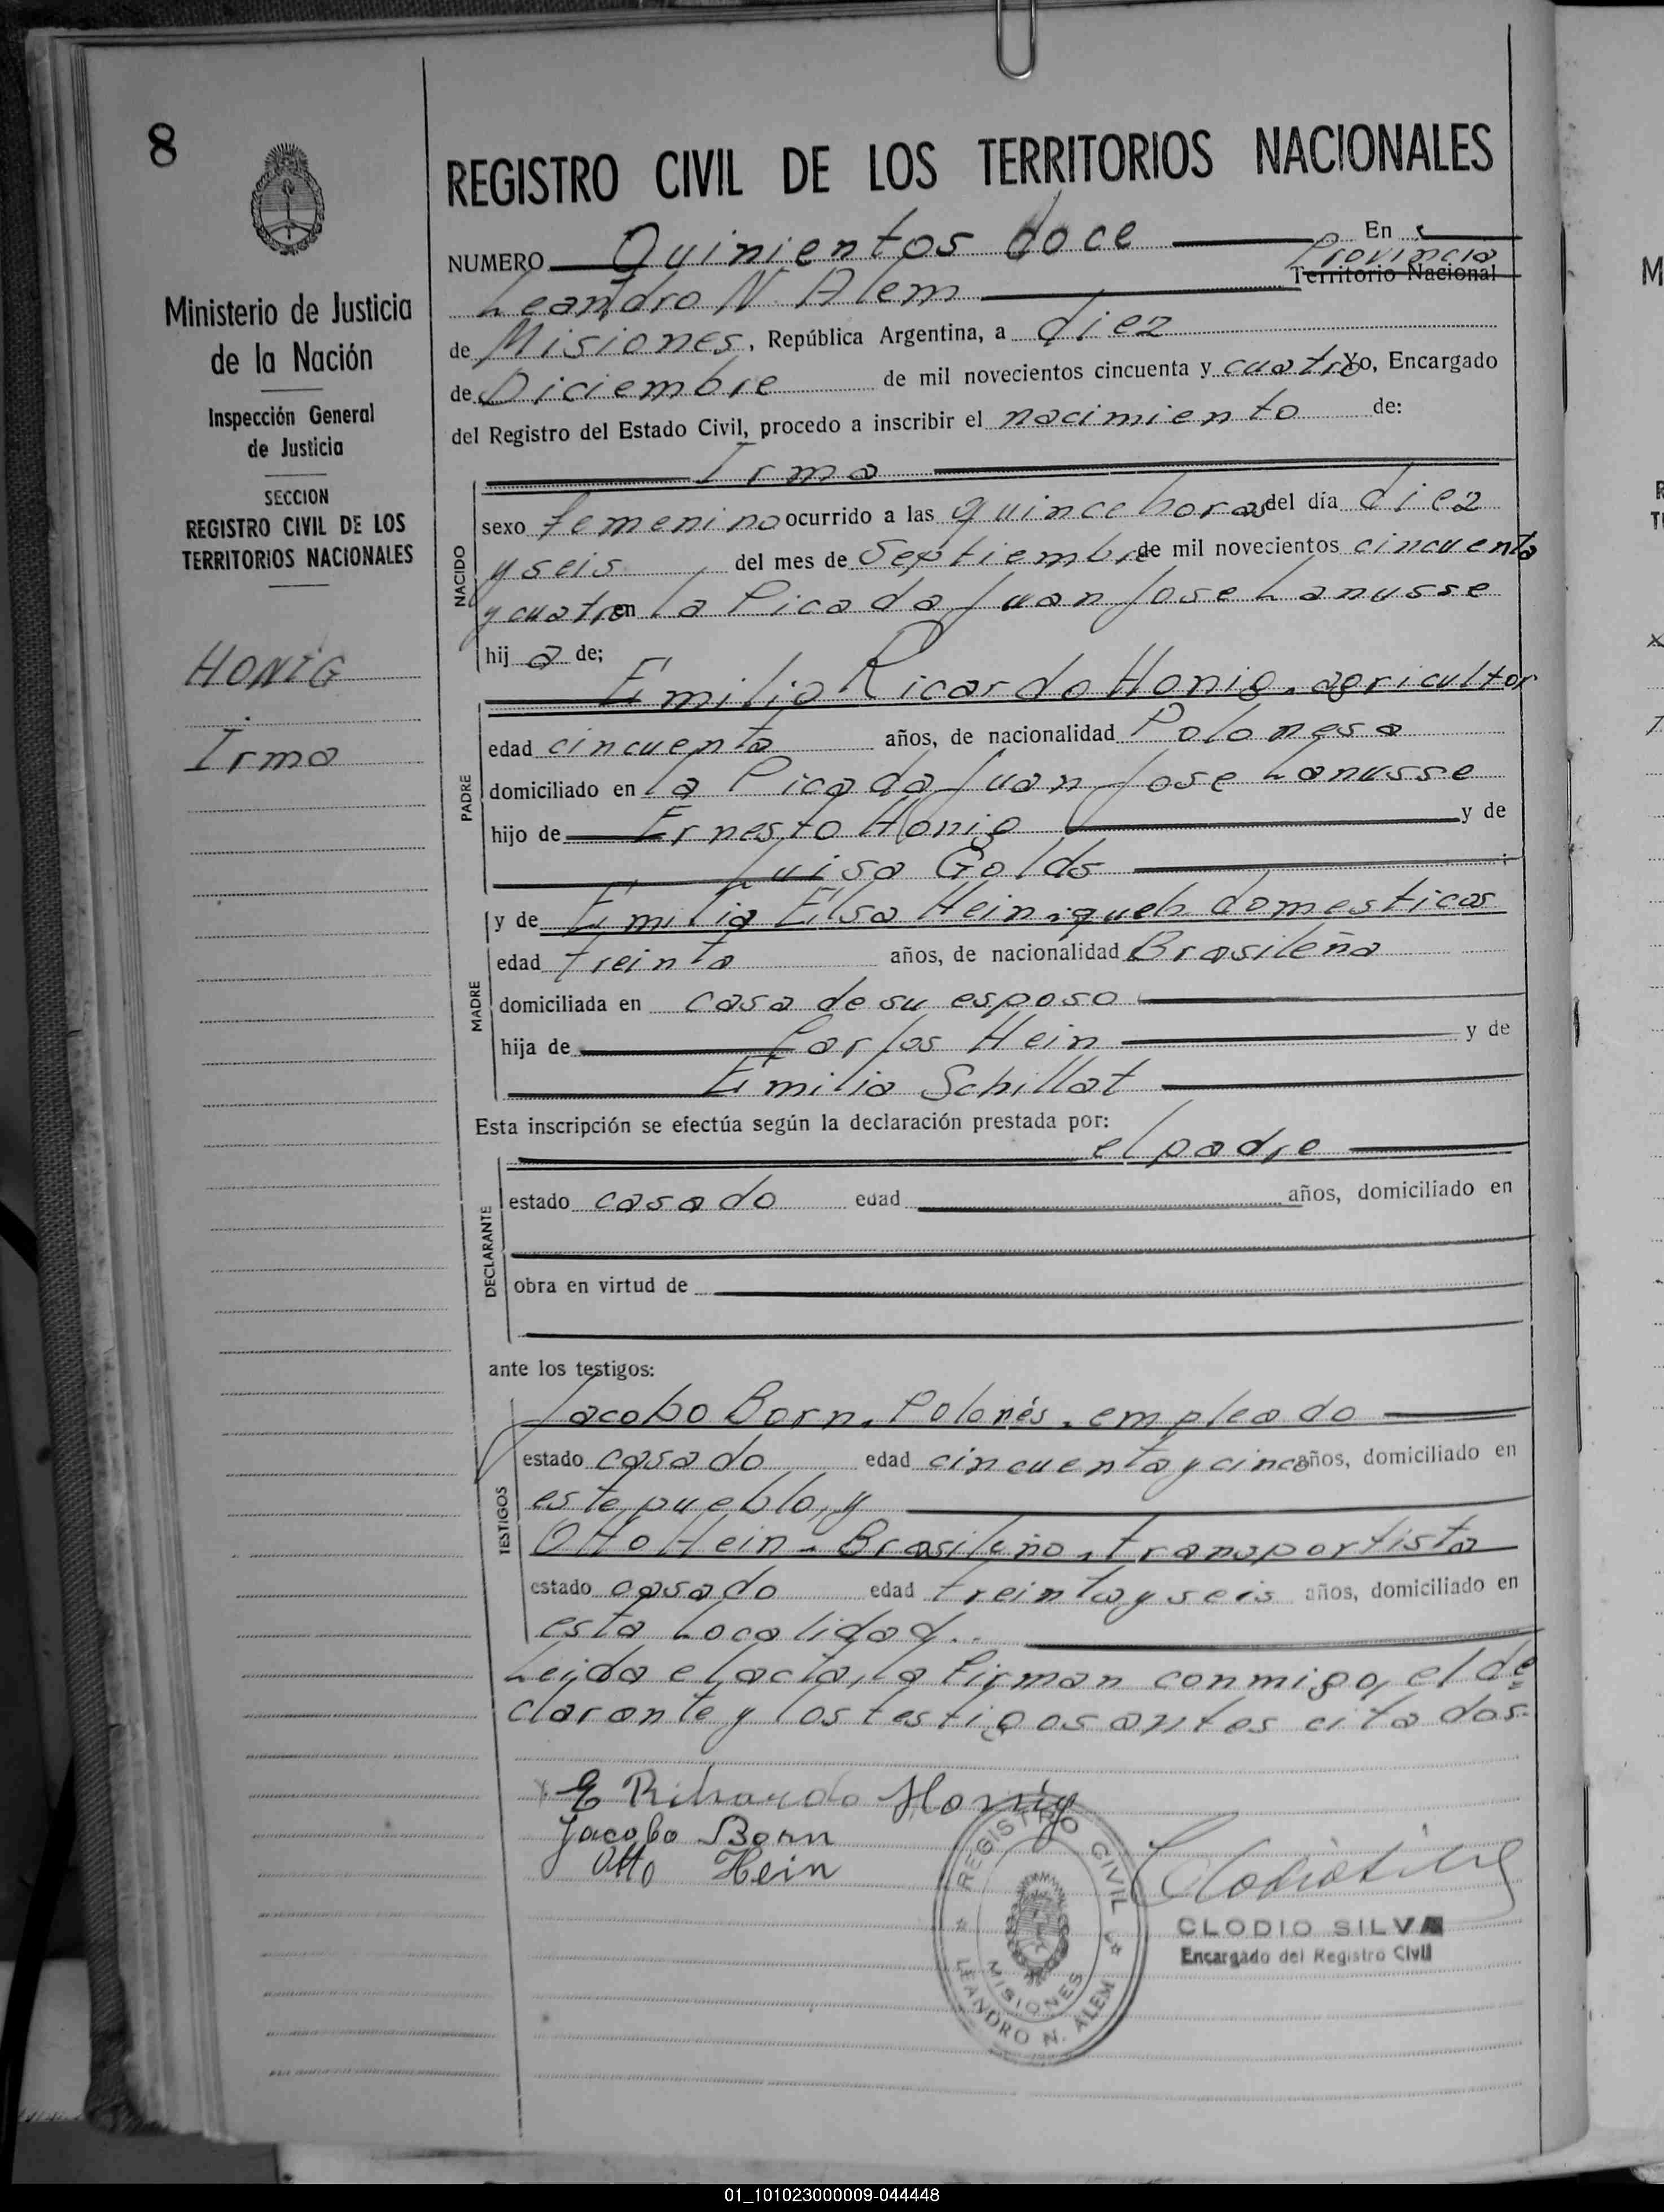 8
REGISTRO CIVIL DE LOS TERRITORIOS NACIONALES
NUMERO Quinientos doce En
Leandro N. Alem Provincia
Territorio Nacional
de Misiones, República Argentina, a diez
de Diciembre de mil novecientos cincuenta y cuatro Yo, Encargado
del Registro del Estado Civil, procedo a inscribir el nacimiento de:
Irma
NACIDO
sexo femenino ocurrido a las quince horas del día diez
y seis del mes de Septiembre de mil novecientos cincuenta
y cuatro en la Picada Juan Jose Lanusse
hij a de;
Emilio Ricardo Honig. agricultor
PADRE
edad cincuenta años, de nacionalidad Polonesa
domiciliado en la Picada Juan Jose Lanusse
hijo de Ernesto Honig y de
Luisa Golds
MADRE
y de Emilia Elsa Hein, domesticos
edad treinta años, de nacionalidad Brasileña
domiciliada en casa de su esposo
hija de Carlos Hein y de
Emilia Schillat
Esta inscripción se efectúa según la declaración prestada por:
el padre
DECLARANTE
estado casado edad años, domiciliado en
obra en virtud de
ante los testigos:
TESTIGOS
Jacobo Born. Polonés. empleado
estado casado edad cincuenta y cinco años, domiciliado en
este pueblo, y
Otto Hein. Brasileño. transportista
estado casado edad treinta y seis años, domiciliado en
esta Localidad..
Leida el acta, la firman conmigo, el de
clarante y los testigos antes citados.
x E Rihardo Honig
Jacobo Born
Otto Hein
REGISTRO CIVIL
MISIONES
LEANDRO N. ALEM
CLODIO SILVA
Encargado del Registro Civil
Ministerio de Justicia
de la Nación
Inspección General
de Justicia
SECCION
REGISTRO CIVIL DE LOS
TERRITORIOS NACIONALES
HONIG
Irma
01_101023000009-044448